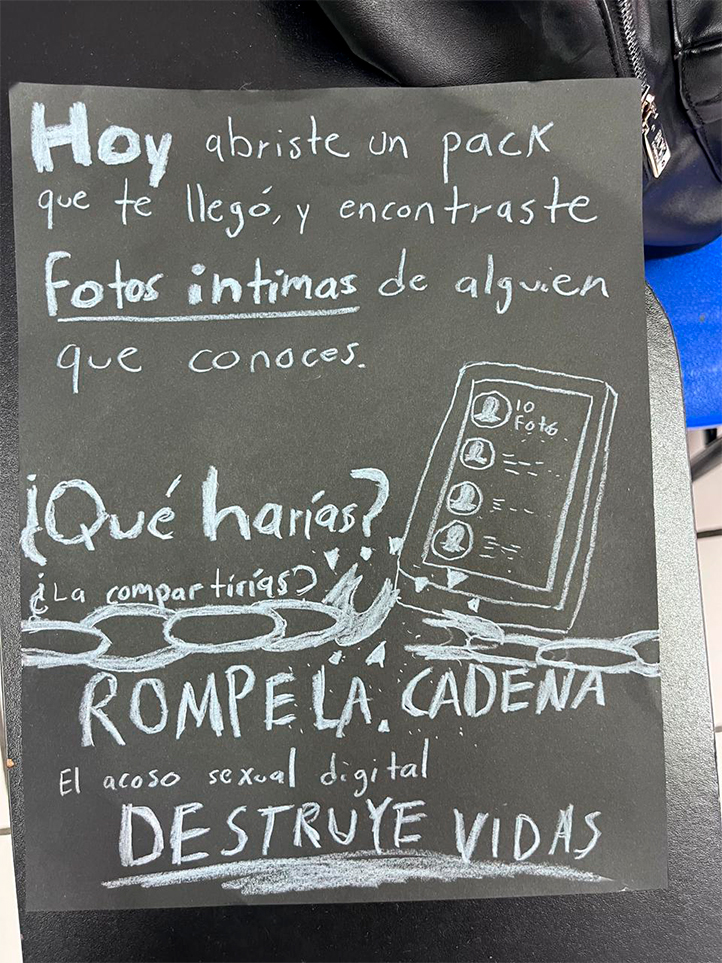 Hoy abriste un pack
que te llegó, y encontraste
Fotos íntimas de alguien
que conoces.
10
Foto
¿Qué harías?
¿La compartirías?
ROMPE LA CADENA
El acoso sexual digital
DESTRUYE VIDAS